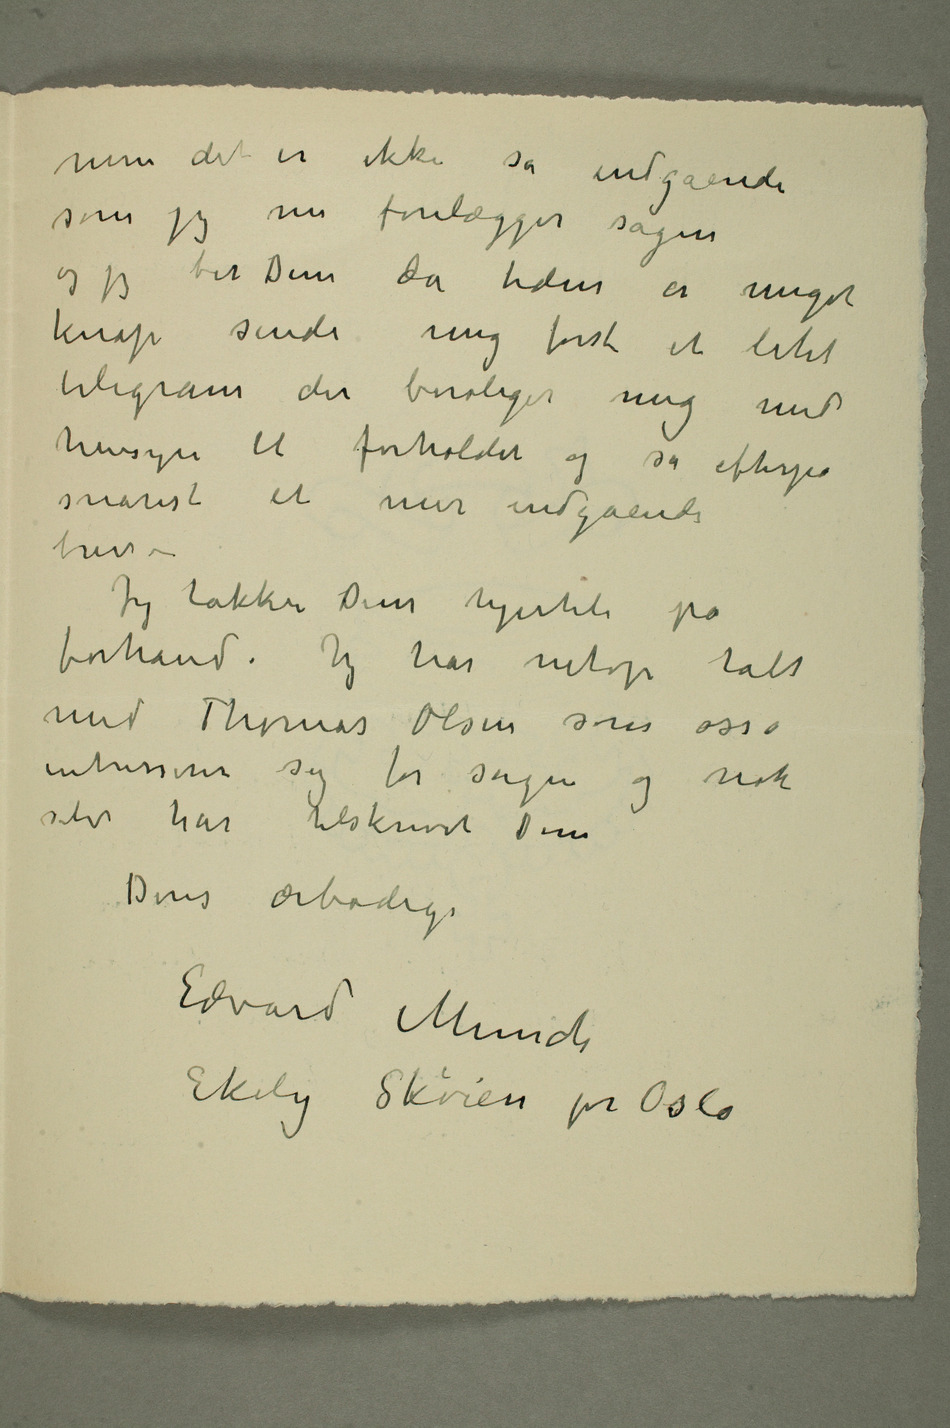 men det er ikke så indgående
som jeg nu forelægger sagen
og jeg ber Dem da tiden er meget
knap sende mig først et litet
telegram der beroliger mig med
hensyn til forholdet og så efterpå
snarest et mer indgående
brev –
Jeg takker Dem hjerteli på
forhånd. Jeg har netop talt
med Thomas Olsen som osså
intresserer sig for sagen og nok
selv har tilskrevet Dem
Deres ærbødige
Edvard Munch
Ekely Skøien pr Oslo